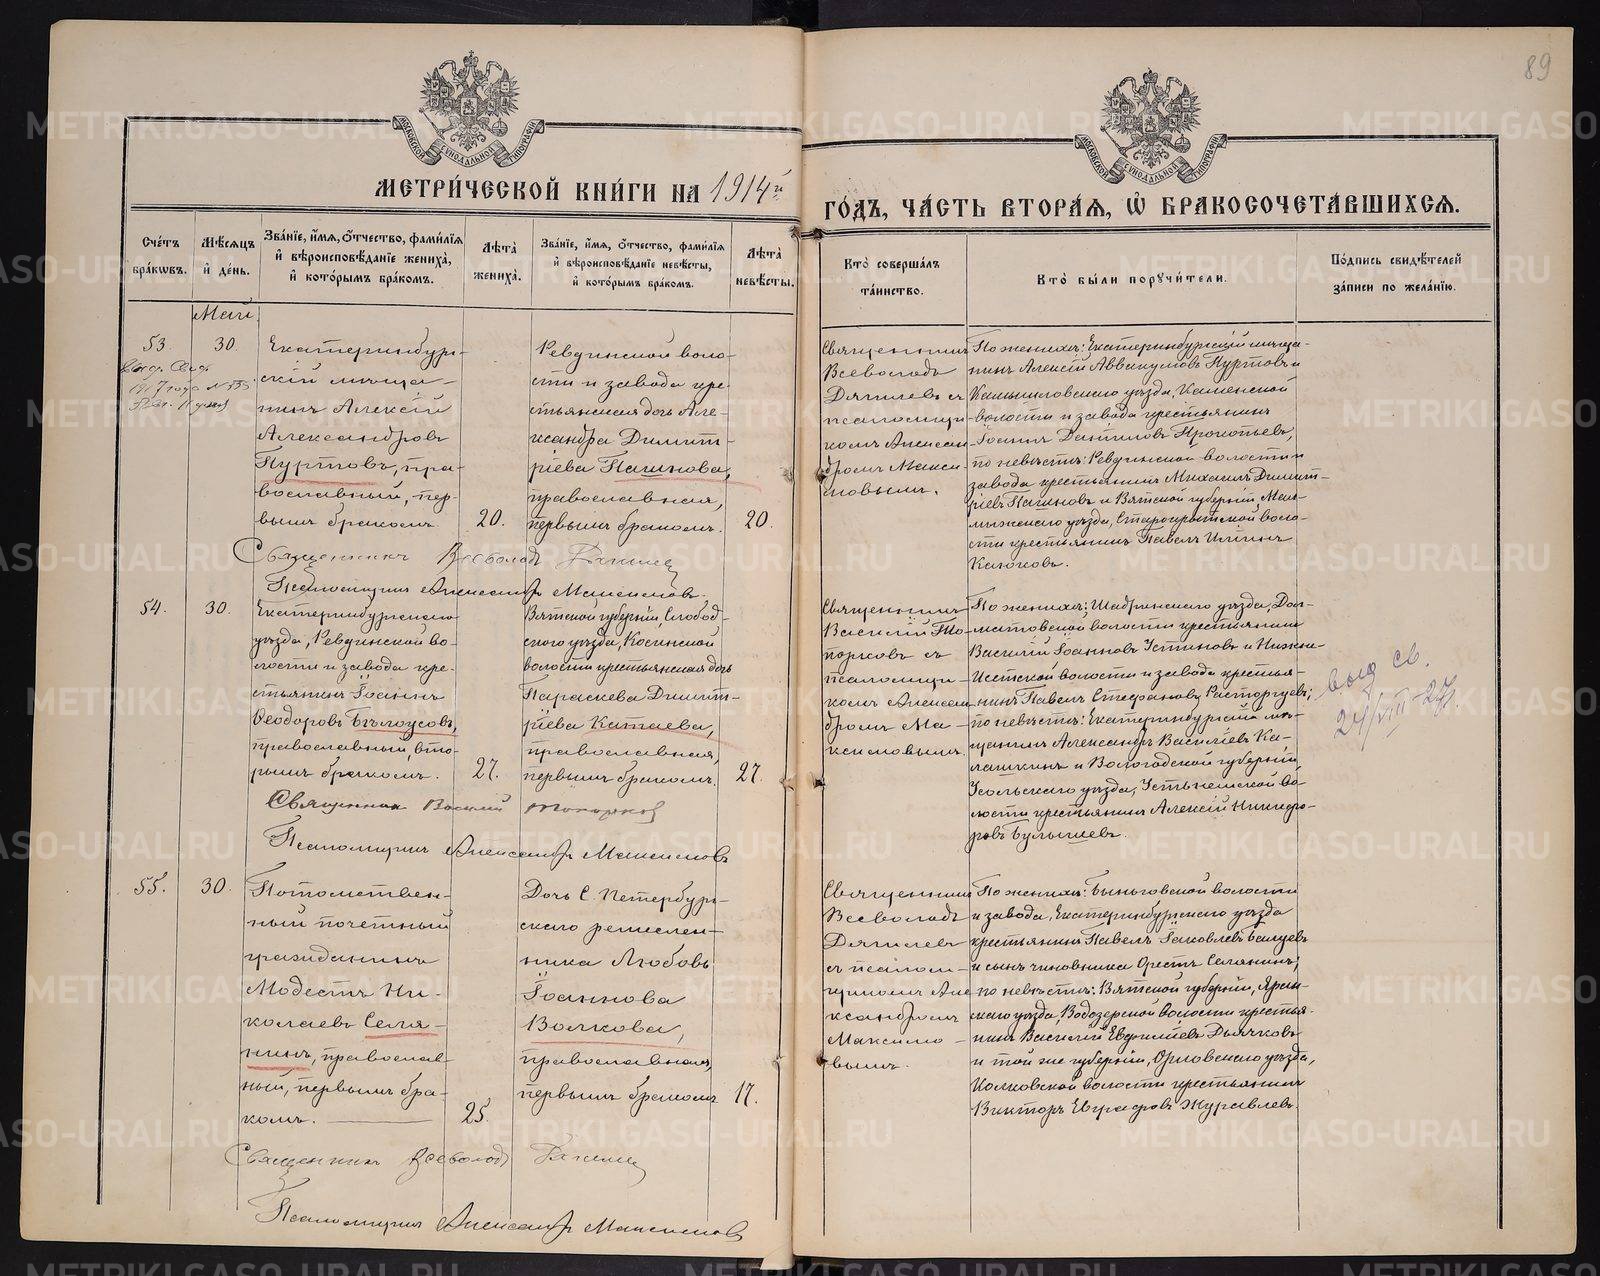 89
МОСКОВСКОЙ СѴНОДАЛЬНОЙ ТИПОГРАФІИ
МОСКОВСКОЙ СѴНОДАЛЬНОЙ ТИПОГРАФІИ
МЕТРИ́ЧЕСКОЙ КНИ́ГИ НА 1914й
ГО́ДЪ, ЧА́СТЬ ВТОРА́Я, Ѡ БРАКОСОЧЕТА́ВШИХСЯ.
Сче́тъ бра́ковъ.
Мѣ́сяцъ и де́нь.
Зва́нїе, и́мя, о́тчество, фами́лїя
и вѣроисповѣ́данїе жениха̀,
и кото́рымъ бра́комъ.
Лѣта̀ жениха̀.
Зва́нїе, и́мя, о́тчество, фами́лїя
и вѣроисповѣ́данїе невѣ́сты,
и кото́рымъ бра́комъ.
Лѣта̀ невѣ́сты.
Кто̀ соверша́лъ
та́инство.
Кто̀ бы́ли порꙋчи́тели.
По́дпись свидѣ́телей
за́писи по жела́нїю.
Май.
53.
1917 года
30.
Екатеринбург-
скій мѣща-
нинъ Алексій
Александровъ
Пуртовъ, пра-
вославный, пер-
вымъ бракомъ
20.
Ревдинской воло-
сти и завода кре-
стьянская дочь Але-
ксандра Димит-
ріева Пашнова,
православная,
первымъ бракомъ.
20.
Священникъ
Всеволодъ
Дягилевъ съ
псаломщи-
комъ Алексан-
дромъ Макси-
мовымъ.
По женихѣ: Екатеринбургскій мѣща-
нинъ Алексій Аввакумовъ Пуртовъ и
Камышловскаго уѣзда, Каменской
волости и завода крестьянинъ
Іоаннъ Даніиловъ Прокопьевъ,
по невѣстѣ: Ревдинской волости и
завода крестьянинъ Михаилъ Димит-
ріевъ Пашновъ и Вятской губерніи, Мал-
мыжскаго уѣзда, воло-
сти крестьянинъ Павелъ Ильинъ
Священникъ Всеволодъ Дягилев
Псаломщикъ Александръ Максимовъ.
54.
30.
Екатеринбургскаго
уѣзда, Ревдинской во-
лости и завода кре-
стьянинъ Іоаннъ
Ѳеодоровъ Бѣлоусовъ,
православный, вто-
рымъ бракомъ.
27.
Вятской губерніи Слобод-
ского уѣзда, Косинской
волости крестьянская дочь
Параскева Димит-
ріева Катаева,
православная,
первымъ бракомъ.
27.
Священникъ
Василій То-
порковъ съ
псаломщи-
комъ Алексан-
дромъ Ма-
ксимовымъ
По женихѣ: Шадринскаго уѣзда, Дол-
матовской волости крестьянинъ
Василій Іоанновъ Устиновъ и Нижне-
Исетской волости и завода крестья-
нинъ Павелъ Стефановъ Расторгуевъ;
по невѣстѣ: Екатеринбургскій мѣ-
щанинъ Александръ Василіевъ Ка-
лашкинъ и Вологодской губерніи,
Усольскаго уѣзда, во-
лости крестьянинъ Алексій Никифо-
ровъ Булышевъ.
выд св.
24/VIII-27г.
Священникъ Василій Топорков
Псаломщикъ Александръ Максимовъ
55.
30.
Потомствен-
ный почетный
гражданинъ
Модестъ Ни-
колаевъ Селя-
нинъ, православ-
ный, первымъ бра-
комъ.
25.
Дочь С. Петербург-
скаго ремеслен-
ника Любовь
Іоаннова
Волкова,
православная,
первымъ бракомъ
17.
Священникъ
Всеволодъ
Дягилевъ
съ псалом-
щикомъ Але-
ксандромъ
Максимо-
вымъ.
По женихѣ: Быньговской волости
и завода, Екатеринбургскаго уѣзда
крестьянинъ Павелъ Іаковлевъ
и сынъ чиновника Орестъ Селянинъ;
по невѣстѣ: Вятской губерніи, Яран-
скаго уѣзда, Водозерской волости крестья-
нинъ Василій Дьячковъ
и той же губерніи, Орловскаго уѣзда,
волости крестьянинъ
Викторъ Евграфовъ Журавлевъ.
Священникъ Всеволодъ Дягилев
Псаломщикъ Александръ Максимовъ
METRIKI.GASO-URAL.RU